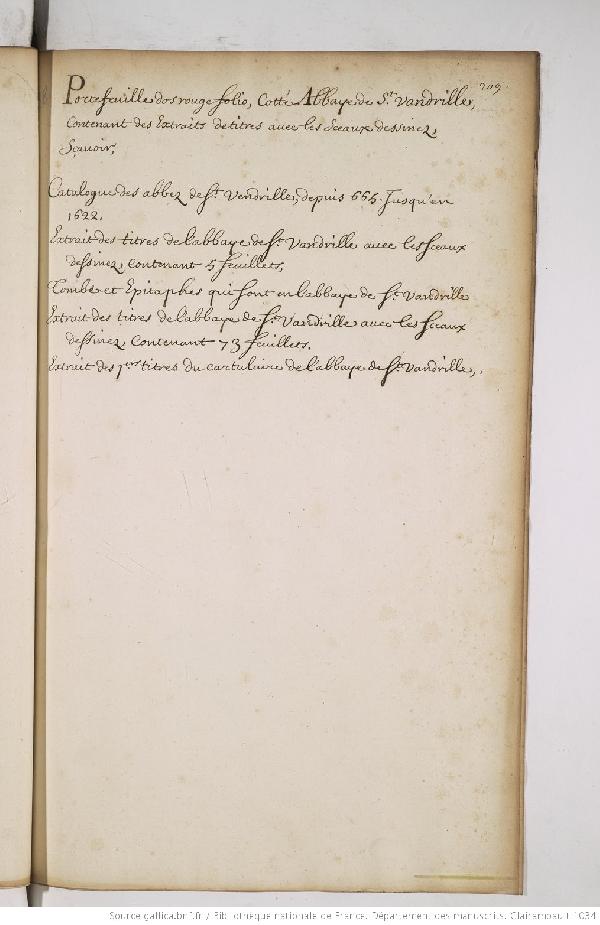 209.
Portefeuille dos rouge folio, Cotté Abbaye de St. Vandrille,
Contenant des Extraits de titres avec les Sceaux dessinez,
Sçavoir,
Catalogue des abbez de St. Vandrille, depuis 665. Jusqu'en
1622.
Extrait des titres de l'abbaye de St. Vandrille avec les sceaux
dessinez, Contenant 5 feuillets,
Tombes et Epitaphes qui sont en l'abbaye de St. Vandrille
Extrait des titres de l'abbaye de St. Vandrille avec les sceaux
dessinez, Contenant 73 feuillets.
Extrait des 1ers titres du cartulaire de l'abbaye de St. Vandrille,
Source gallica.bnf.fr / Bibliothèque nationale de France. Département des manuscrits. Clairambault 1034